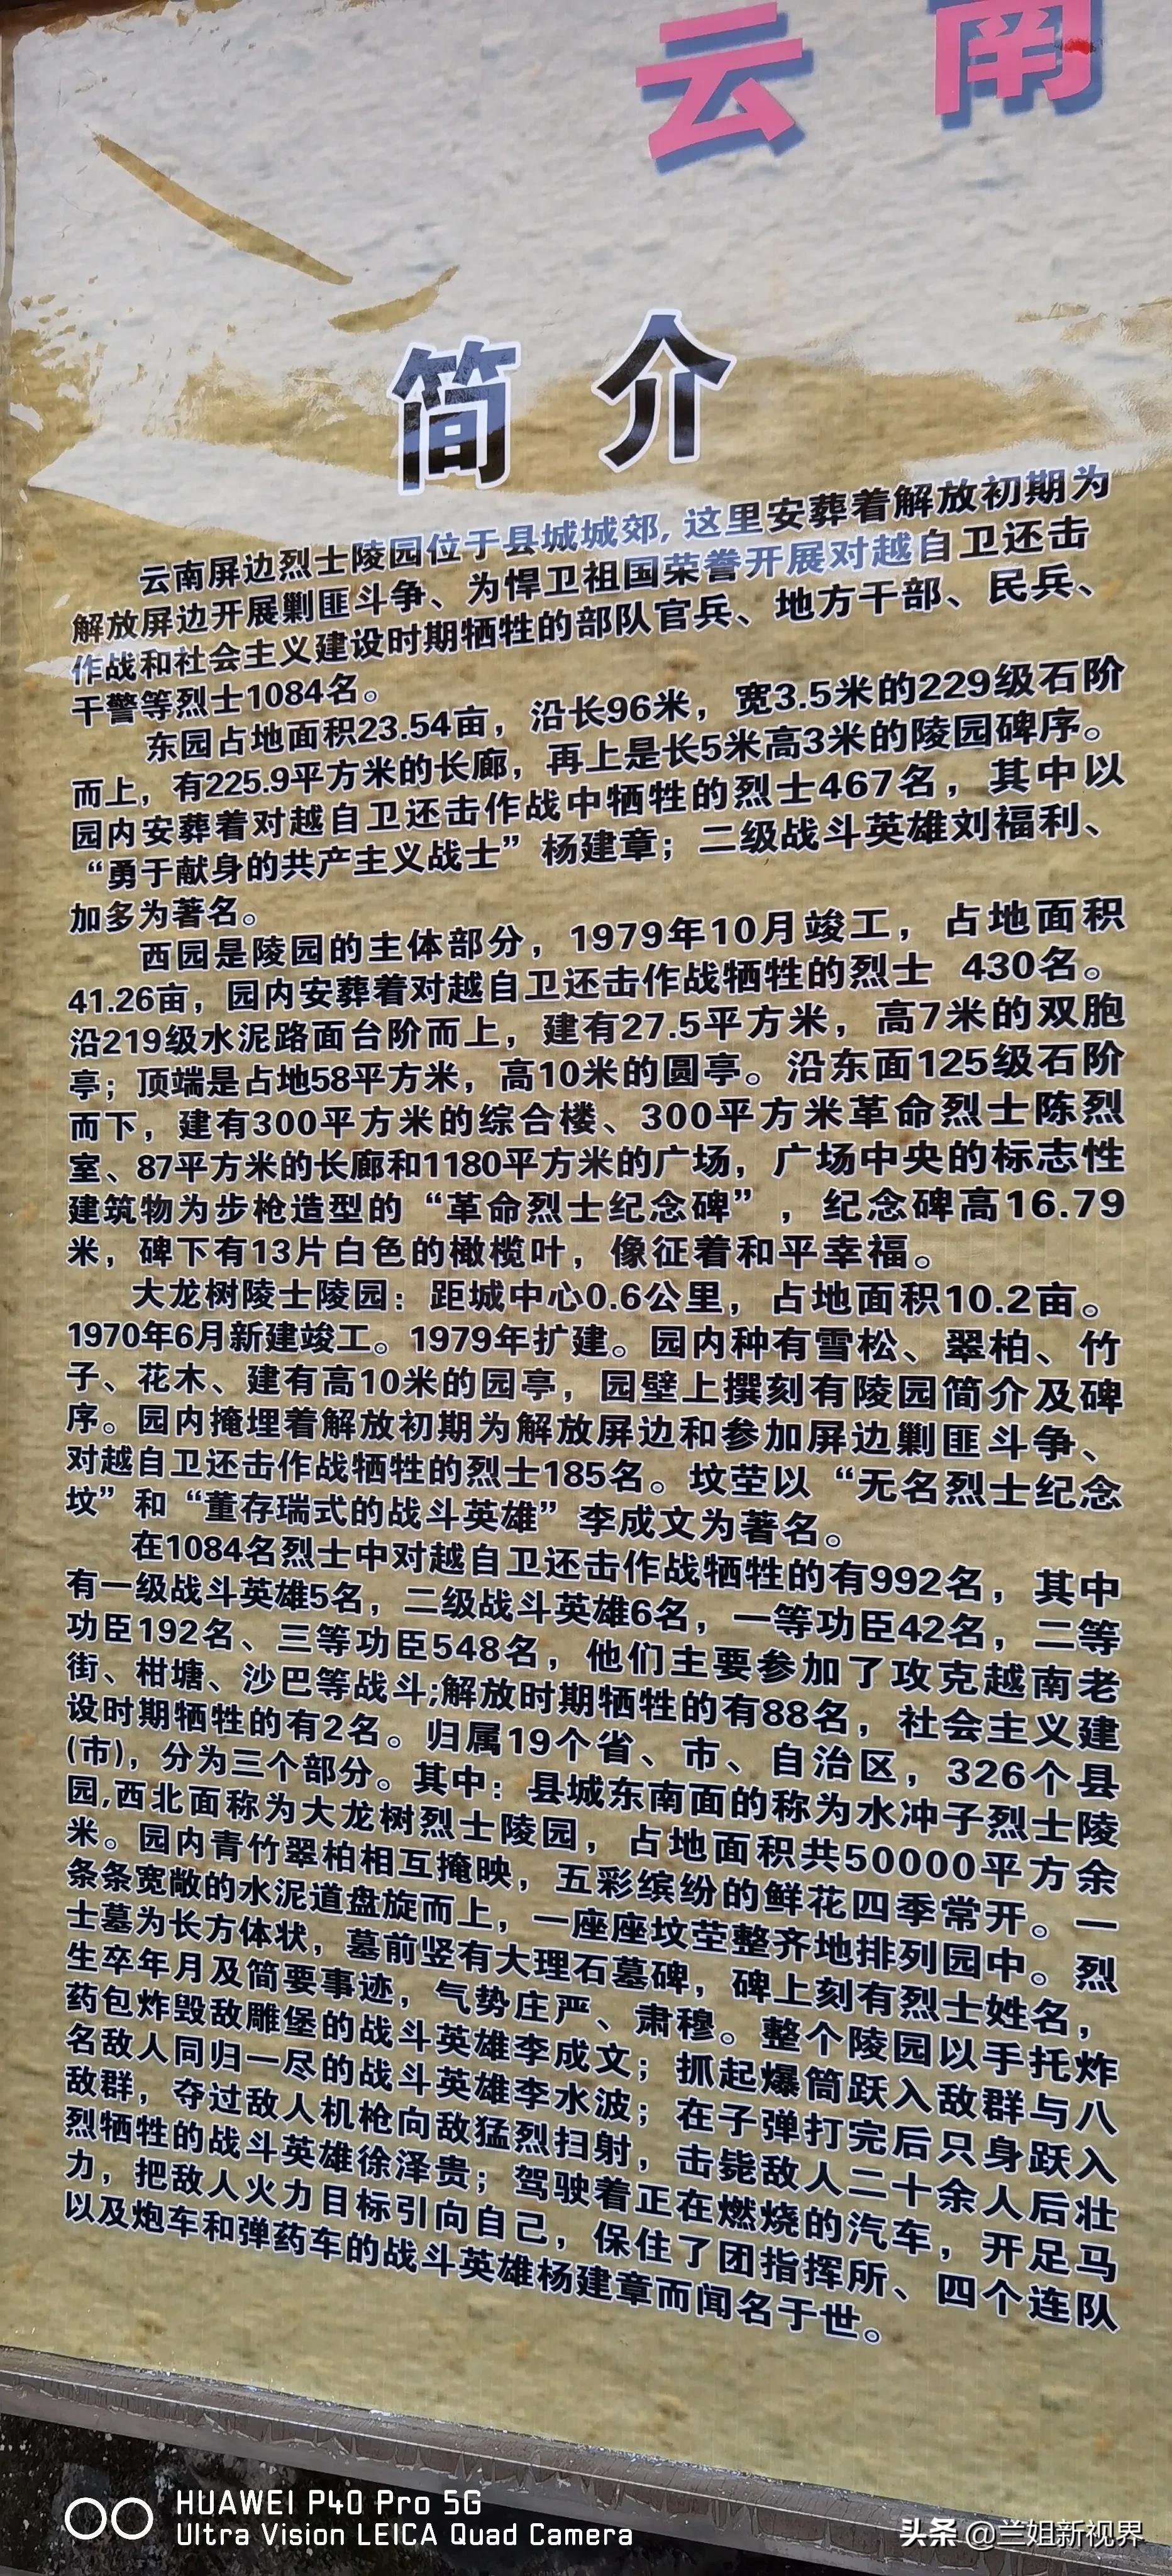 云南
简介
云南屏边烈士陵园位于县城城郊,这里安葬着解放初期为
解放屏边开展剿匪斗争、为悍卫祖国荣誉开展对越自卫还击
作战和社会主义建设时期牺牲的部队官兵、地方干部、民兵、
干警等烈士1084名。
东园占地面积23.54亩，沿长96米，宽3.5米的229级石阶
而上，有225.9平方米的长廊，再上是长5米高3米的陵园碑序。
园内安葬着对越自卫还击作战中牺牲的烈士467名，其中以
“勇于献身的共产主义战士”杨建章；二级战斗英雄刘福利、
加多为著名。
西园是陵园的主体部分，1979年10月竣工，占地面积
41.26亩，园内安葬着对越自卫还击作战牺牲的烈士 430名。
沿219级水泥路面台阶而上，建有27.5平方米，高7米的双胞
亭；顶端是占地58平方米，高10米的圆亭。沿东面125级石阶
而下，建有300平方米的综合楼、300平方米革命烈士陈烈
室、87平方米的长廊和1180平方米的广场，广场中央的标志性
建筑物为步枪造型的“革命烈士纪念碑”，纪念碑高16.79
米，碑下有13片白色的橄榄叶，像征着和平幸福。
大龙树陵士陵园：距城中心0.6公里，占地面积10.2亩。
1970年6月新建竣工。1979年扩建。园内种有雪松、翠柏、竹
子、花木、建有高10米的园亭，园壁上撰刻有陵园简介及碑
序。园内掩埋着解放初期为解放屏边和参加屏边剿匪斗争、
对越自卫还击作战牺牲的烈士185名。坟茔以“无名烈士纪念
坟”和“董存瑞式的战斗英雄”李成文为著名。
在1084名烈士中对越自卫还击作战牺牲的有992名，其中
有一级战斗英雄5名，二级战斗英雄6名，一等功臣42名，二等
功臣192名、三等功臣548名，他们主要参加了攻克越南老
街、柑塘、沙巴等战斗;解放时期牺牲的有88名，社会主义建
设时期牺牲的有2名。归属19个省、市、自治区，326个县
(市)，分为三个部分。其中：县城东南面的称为水冲子烈士陵
园,西北面称为大龙树烈士陵园，占地面积共50000平方余
米。园内青竹翠柏相互掩映，五彩缤纷的鲜花四季常开。一
条条宽敞的水泥道盘旋而上，一座座坟茔整齐地排列园中。烈
士墓为长方体状，墓前竖有大理石墓碑，碑上刻有烈士姓名，
生卒年月及简要事迹，气势庄严、肃穆。整个陵园以手托炸
药包炸毁敌雕堡的战斗英雄李成文；抓起爆筒跃入敌群与八
名敌人同归一尽的战斗英雄李水波；在子弹打完后只身跃入
敌群，夺过敌人机枪向敌猛烈扫射，击毙敌人二十余人后壮
烈牺牲的战斗英雄徐泽贵；驾驶着正在燃烧的汽车，开足马
力，把敌人火力目标引向自己，保住了团指挥所、四个连队
以及炮车和弹药车的战斗英雄杨建章而闻名于世。
HUAWEI P40 Pro 5G
Ultra Vision LEICA Quad Camera
头条 @兰姐新视界